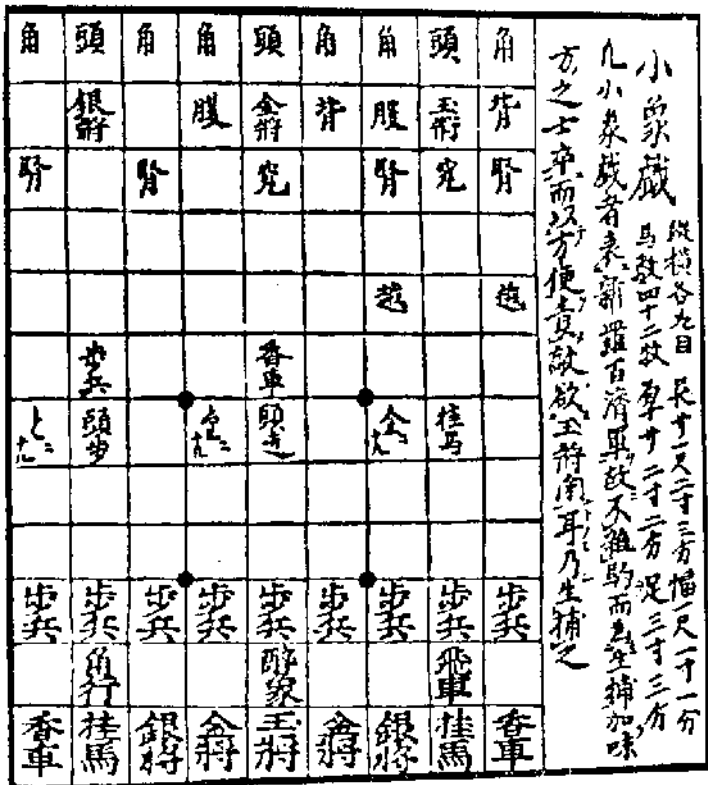 小象戯
縦横各九目 長サ一尺二寸三方幅一尺一寸一分
馬数四十二枚 厚サ二寸二方足三寸三方
凡小象戯者表新羅百済軍故不離駒而生捕加味
方之士卒而以方便責敵欲玉將用耳乃生捕之
角 頭 角 角 頭 角 角 頭 角
銀將 腹 金將 背 腹 玉將 背
腎 腎 究 腎 究 腎
越
歩兵 香車
と 頭歩 金 桂马
歩兵 歩兵 歩兵 歩兵 歩兵 歩兵 歩兵 歩兵 歩兵
角行 酔象 飛車
香車 桂馬 銀將 金將 玉將 金將 銀將 桂馬 香車